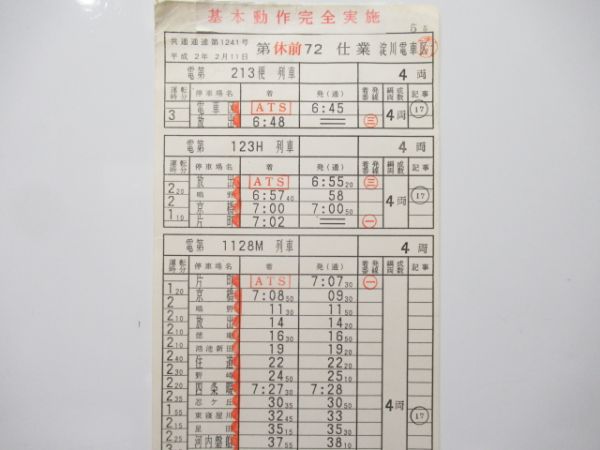 基本動作完全実施
5
共通運達第1241号
平成 2年 2月11日
第休前72 仕業 淀川電車区
電第 213便 列車 4両
運転時分 停車場名 着 発(通) 着発番線 編成両数 記事
電車 ATS 6:45
3 放出 6:48 ㊂ 4両 ⑰
電第 123H 列車 4両
運転時分 停車場名 着 発(通) 着発番線 編成両数 記事
放出 ATS 6:55 20 ㊂
2 20 鴫野 6:57 40 58
2 京橋 7:00 7:00 50
1 10 片町 7:02 ㊀
4両 ⑰
電第 1128M 列車 4両
運転時分 停車場名 着 発(通) 着発番線 編成両数 記事
片町 ATS 7:07 30 ㊀
1 20 京橋 7:08 50 09 30
2 鴫野 11 30 11 50
2 10 放出 14 14 20
2 10 徳庵 16 30 16 50
2 10 鴻池新田 19 19 20
2 40 住道 22 22 20
2 30 野崎 24 50 25 10
2 20 四条畷 7:27 30 7:28
2 35 忍ケ丘 30 35 30 50
1 55 東寝屋川 32 45 33
2 15 星田 35 15 35 30
2 25 河内磐船 37 55 38 10
4両 ⑰